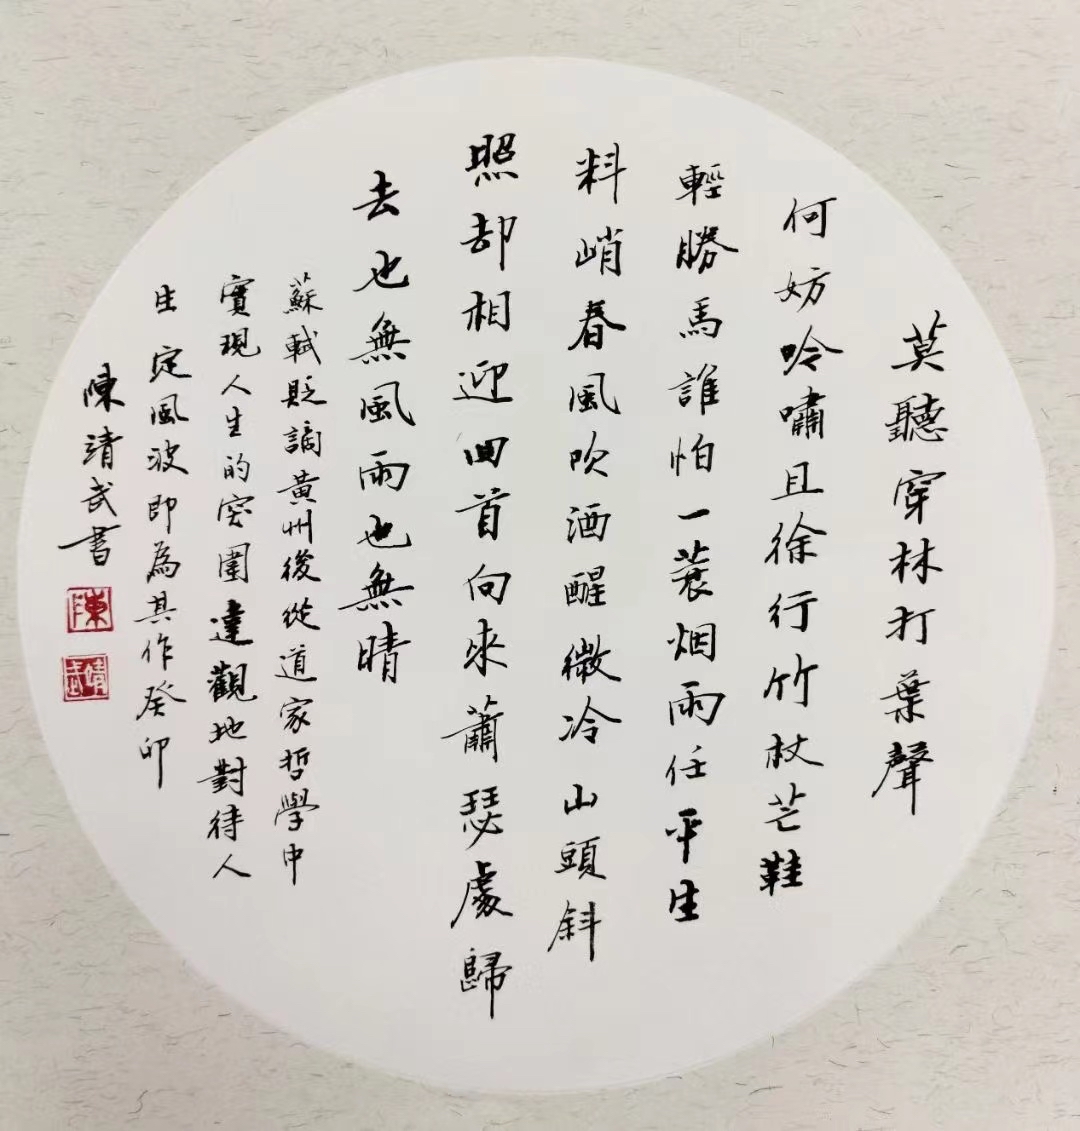 莫聽穿林打葉聲
何妨吟嘯且徐行竹杖芒鞋
輕勝馬誰怕一蓑烟雨任平生
料峭春風吹酒醒微冷山頭斜
照却相迎回首向來蕭瑟處歸
去也無風雨也無晴
蘇軾貶謫黃州後從道家哲學中
實現人生的突圍達觀地對待人
生定風波即為其作癸卯
陳靖武書
陳
靖武